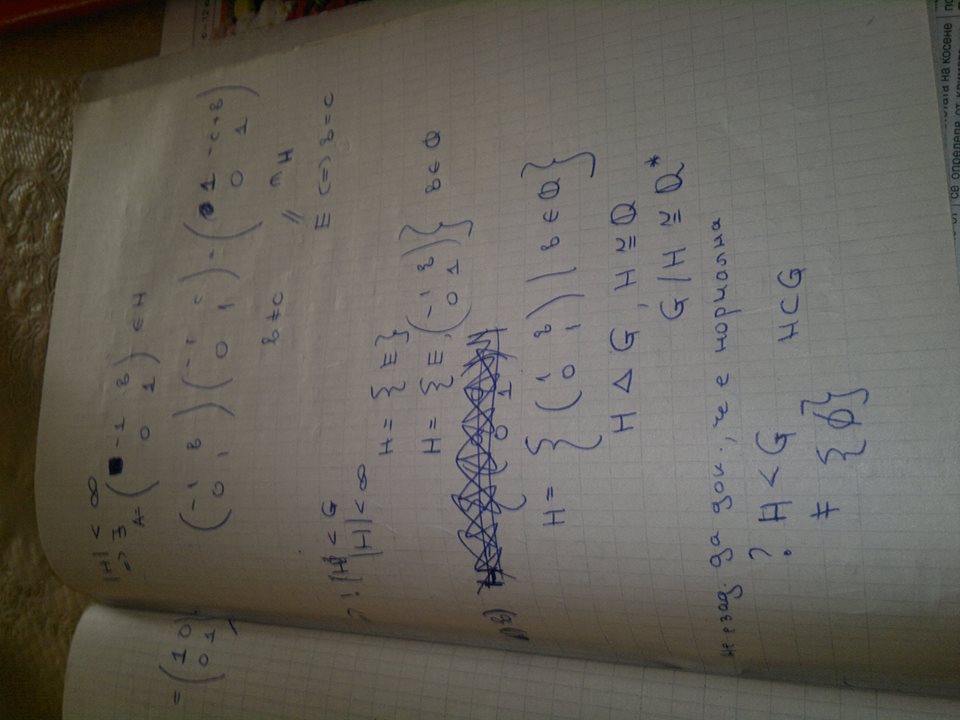 |H| < ∞
=> ∃ A = ( -1 b
0 1 ) ∈ H
( -1 b
0 1 ) ( -1 c
0 1 ) = ( 1 -c+b
0 1 )
b ≠ c
∈ H
E <=> b = c
= ( 1 0
0 1 )
! H < G
|H| < ∞
H = { E }
H = { E, ( -1 b
0 1 ) } b ∈ Q
H = { ( 1 b
0 1 ) | b ∈ Q }
H Δ G, H ≅ Q
G / H ≅ Q*
да док., че е нормална
? H < G H ⊂ G
≠ { ∅ }